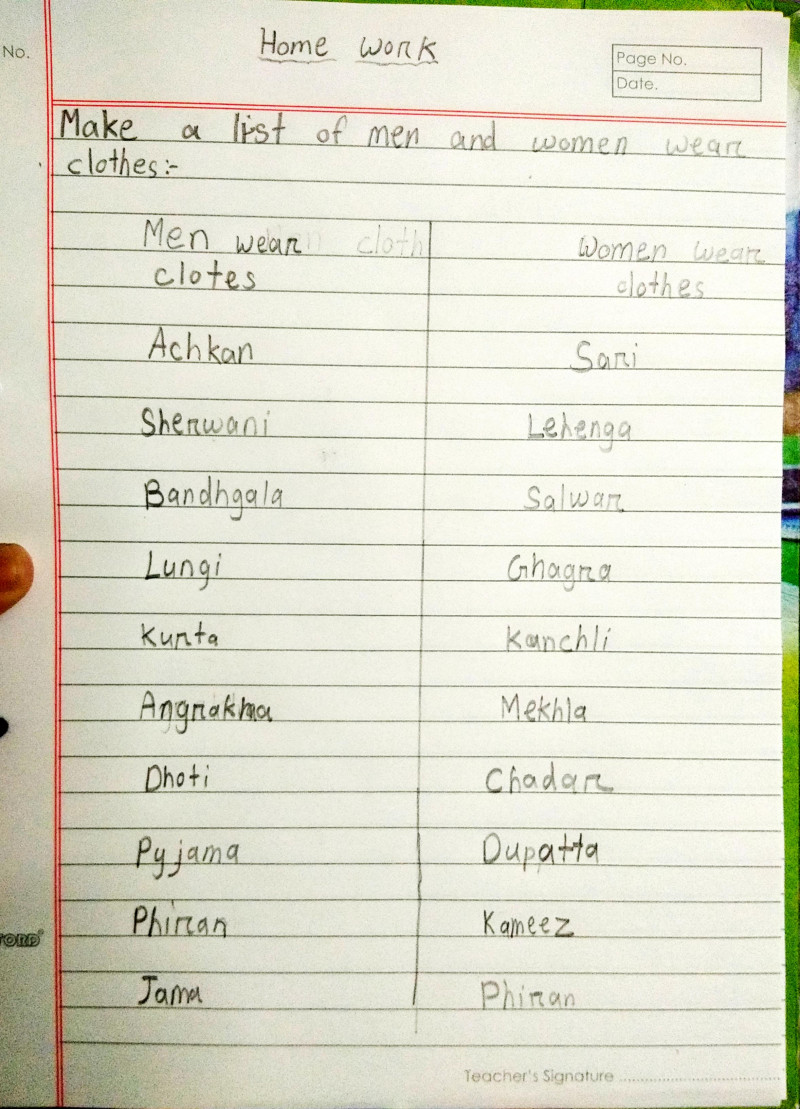 No.
Home work
Page No.
Date.
Make a list of men and women wear
clothes:-
Men wear cloth
clotes
Women wear
clothes
Achkan Sari
Sherwani Lehenga
Bandhgala Salwar
Lungi Ghagra
Kurta Kanchli
Angrakha Mekhla
Dhoti Chadar
Pyjama Dupatta
Phiran Kameez
Jama Phiran
Teacher's Signature